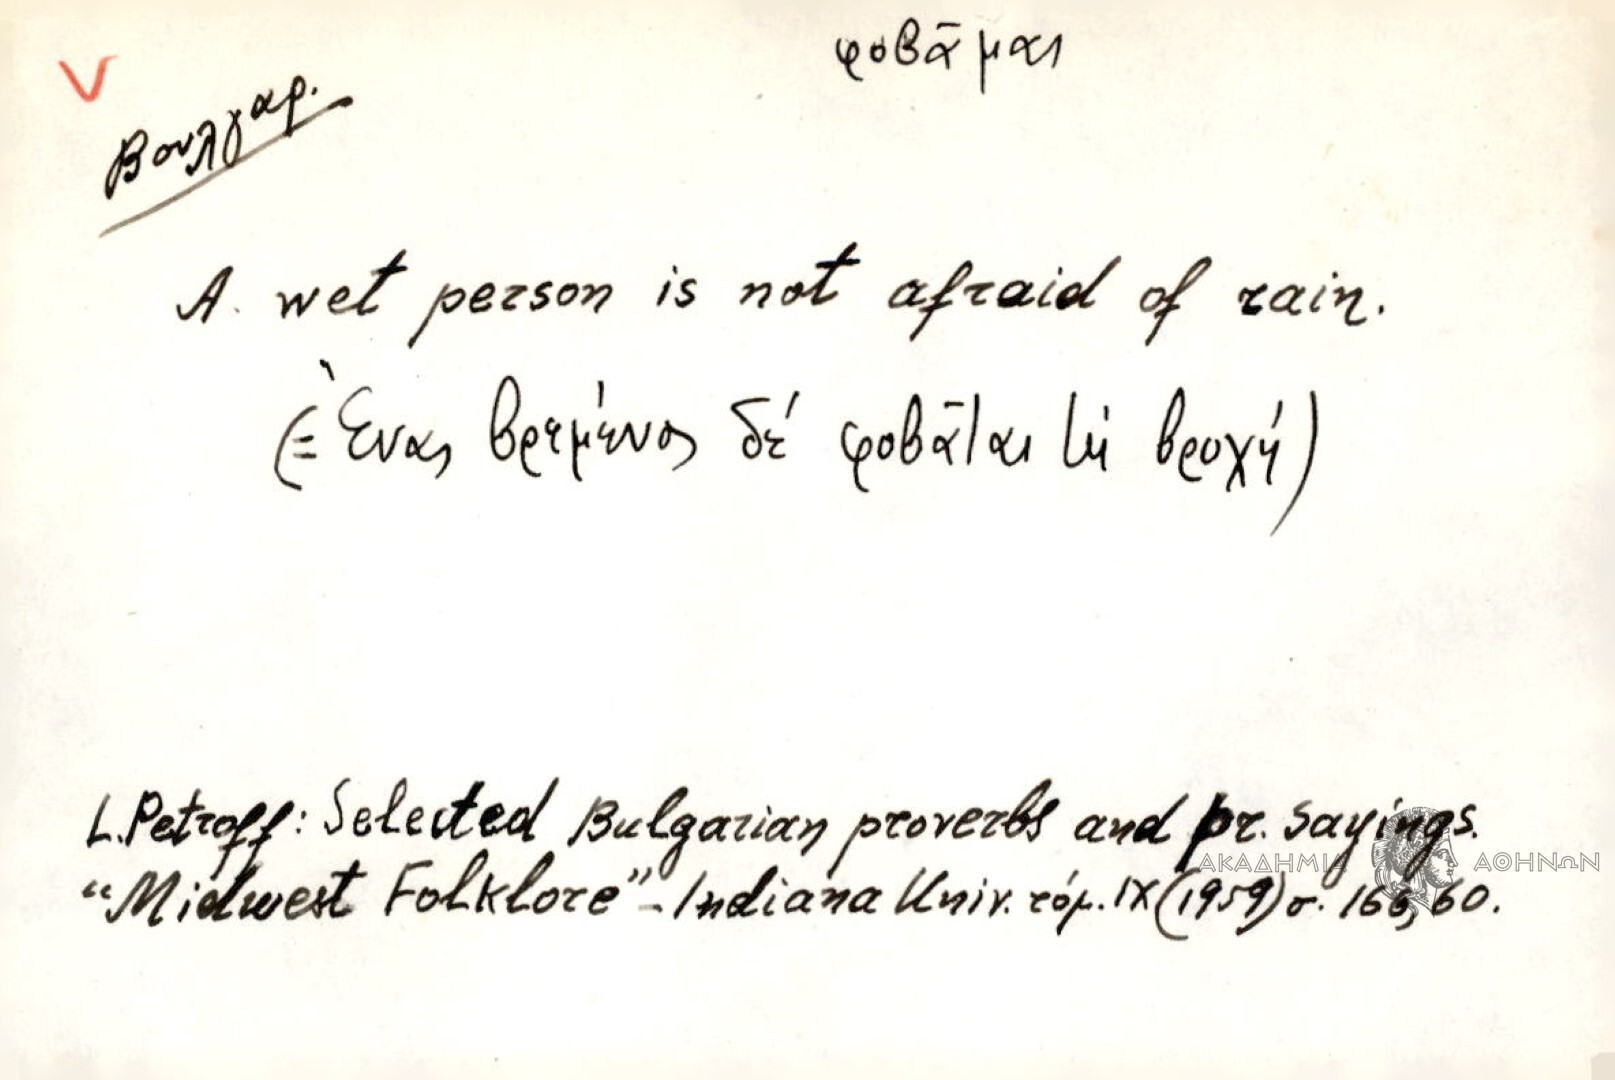 φοβᾶμαι
V
Βουλγαρ.
A wet person is not afraid of rain.
(= Ἕνας βρεμένος δέ φοβᾶται τή βροχή)
L. Petroff: Selected Bulgarian proverbs and pr. sayings.
“Midwest Folklore” - Indiana Univ. τόμ. IX (1959) σ. 166, 60.
ΑΚΑΔΗΜΙΑ ΑΘΗΝΩΝ